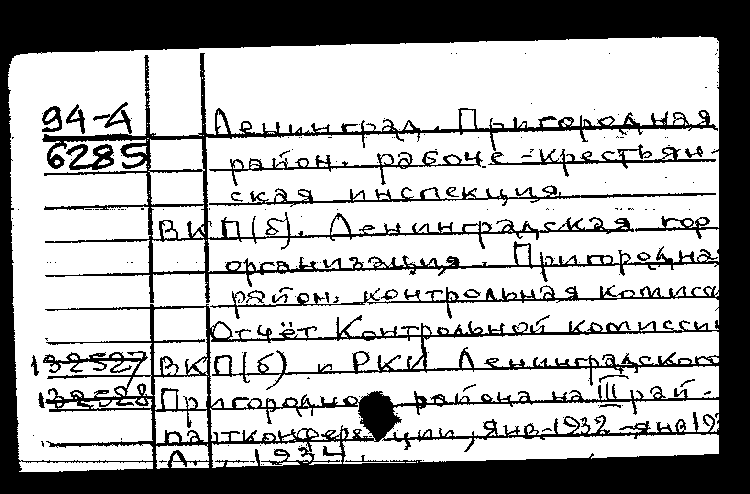 94-4 Ленинград. Пригородная
6285 район. рабоче-крестьян-
ская инспекция
ВКП(б). Ленинградская гор
организация. Пригородна
район. контрольная комисс
Отчёт Контрольной комиссии
132527 ВКП(б) и РКИ Ленинградского
132528 Пригородно района на III рай-
партконференции, янв.1932-янв 193
Л., 1934.